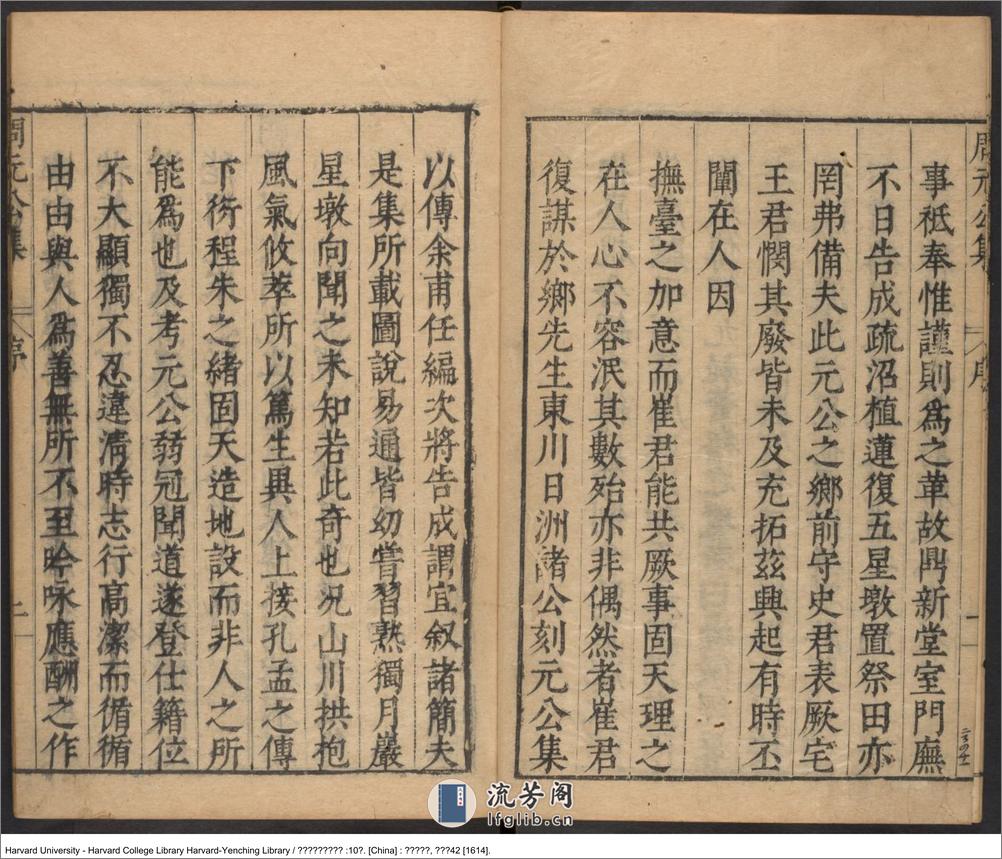 事祗奉惟謹則為之葦故鼎新堂室門廡
不日告成疏沼植蓮復五星墩置祭田亦
罔弗備夫此元公之鄉前守史君表厥宅
王君憫其廢皆未及充拓茲興起有時丕
闡在人因
撫臺之加意而崔君能共厥事固天理之
在人心不容泯其數殆亦非偶然者崔君
復謀於鄉先生東川日洲諸公刻元公集
周元公集
序
一
以傳余甫任編次將告成謂宜叙諸簡夫
是集所載圖說易通皆幼嘗習熟獨月巖
星墩向聞之未知若此奇也况山川拱抱
風氣攸萃所以篤生異人上接孔孟之傳
下衍程朱之緒固天造地設而非人之所
能為也及考元公弱冠聞道遂登仕籍位
不大顯獨不忍違清時志行高潔而循循
由由與人為善無所不至吟咏應酬之作
周元公集
序
二
流芳阁
lfglib.cn
Harvard University - Harvard College Library Harvard-Yenching Library / ????????? :10?. [China] : ?????, ???42 [1614].